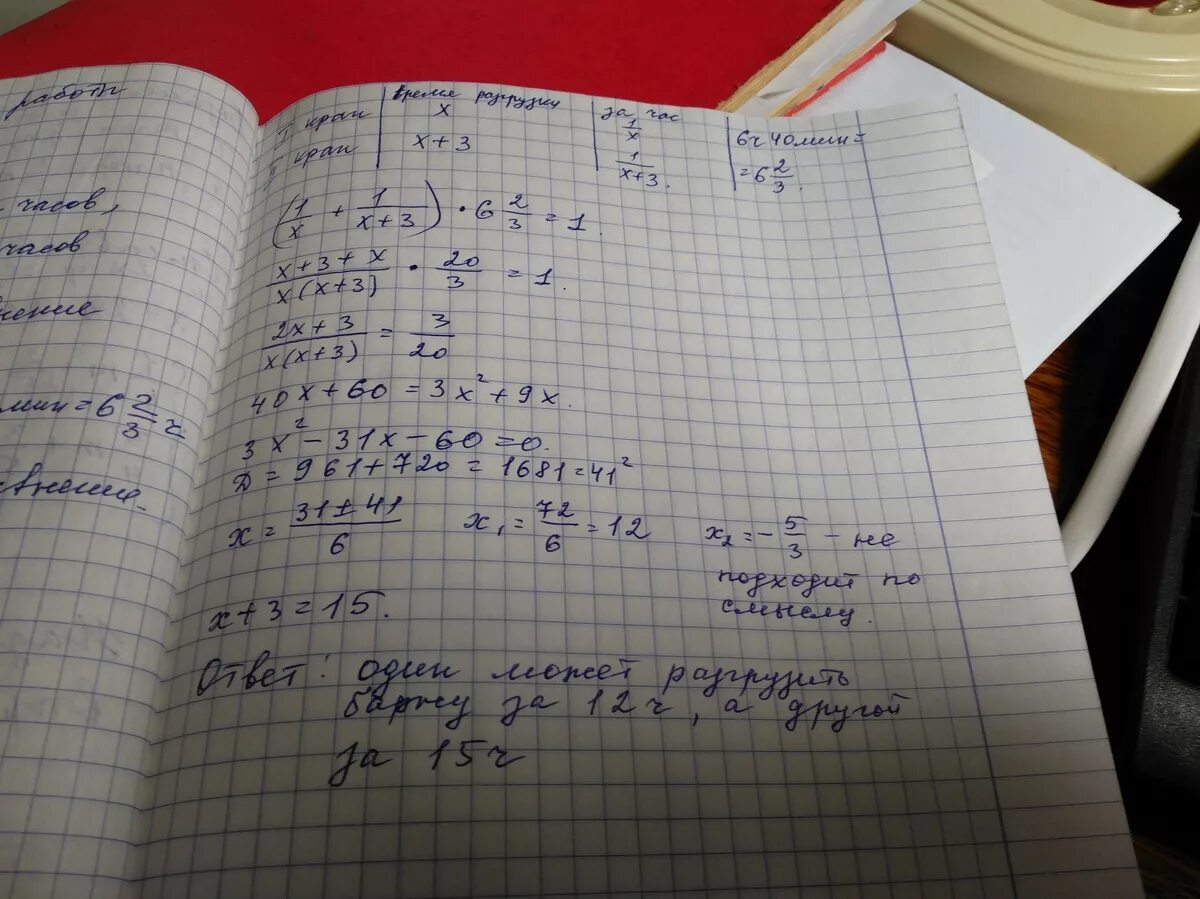 работы
часов,
часов
мин = 6 2/3 ч
время разгрузки | за час | 6ч 40мин =
I кран | x | 1/x | = 6 2/3.
II кран | x + 3 | 1/(x+3).
(1/x + 1/(x+3)) · 6 2/3 = 1.
(x+3+x)/(x(x+3)) · 20/3 = 1.
(2x+3)/(x(x+3)) = 3/20
40x + 60 = 3x² + 9x.
3x² - 31x - 60 = 0.
Д = 961 + 720 = 1681 = 41²
x = (31 ± 41)/6 x₁ = 72/6 = 12 x₂ = - 5/3 - не
подходит по
смыслу.
x + 3 = 15.
Ответ: один может разгрузить
баржу за 12ч, а другой
за 15ч